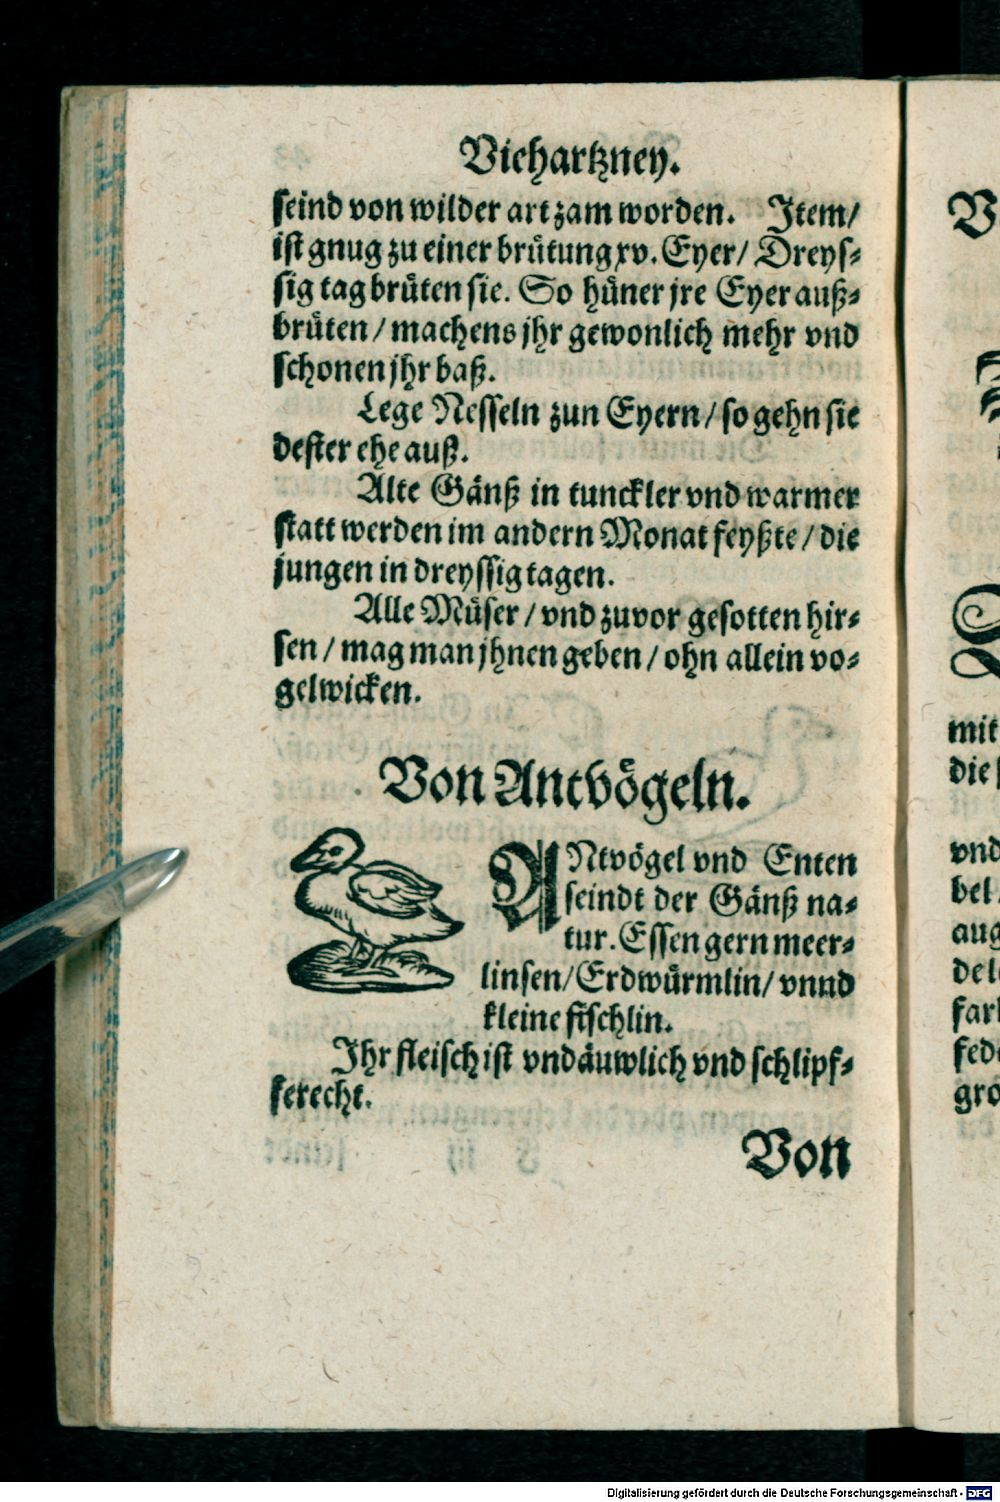 Viehartzney.
seind von wilder art zam worden. Item/
ist gnug zu einer brütung xv. Eyer/ Dreys⸗
sig tag brüten sie. So hüner jre Eyer auß⸗
brüten/ machens jhr gewonlich mehr vnd
schonen jhr baß.
Lege Nesseln zun Eyern/ so gehn sie
dester ehe auß.
Alte Gänß in tunckler vnd warmer
statt werden im andern Monat feyßte/ die
jungen in dreyssig tagen.
Alle Müser/ vnd zuvor gesotten hir⸗
sen/ mag man jhnen geben/ ohn allein vo⸗
gelwicken.
Von Antvögeln.
ANtvögel vnd Enten
seindt der Gänß na⸗
tur. Essen gern meer⸗
linsen/ Erdwürmlin/ vnnd
kleine fischlin.
Ihr fleisch ist vndäuwlich vnd schlipf⸗
ferecht.
Von
V
mit
die
vnd
bel
aug
de
far
fed
gro
Digitalisierung gefördert durch die Deutsche Forschungsgemeinschaft - DFG